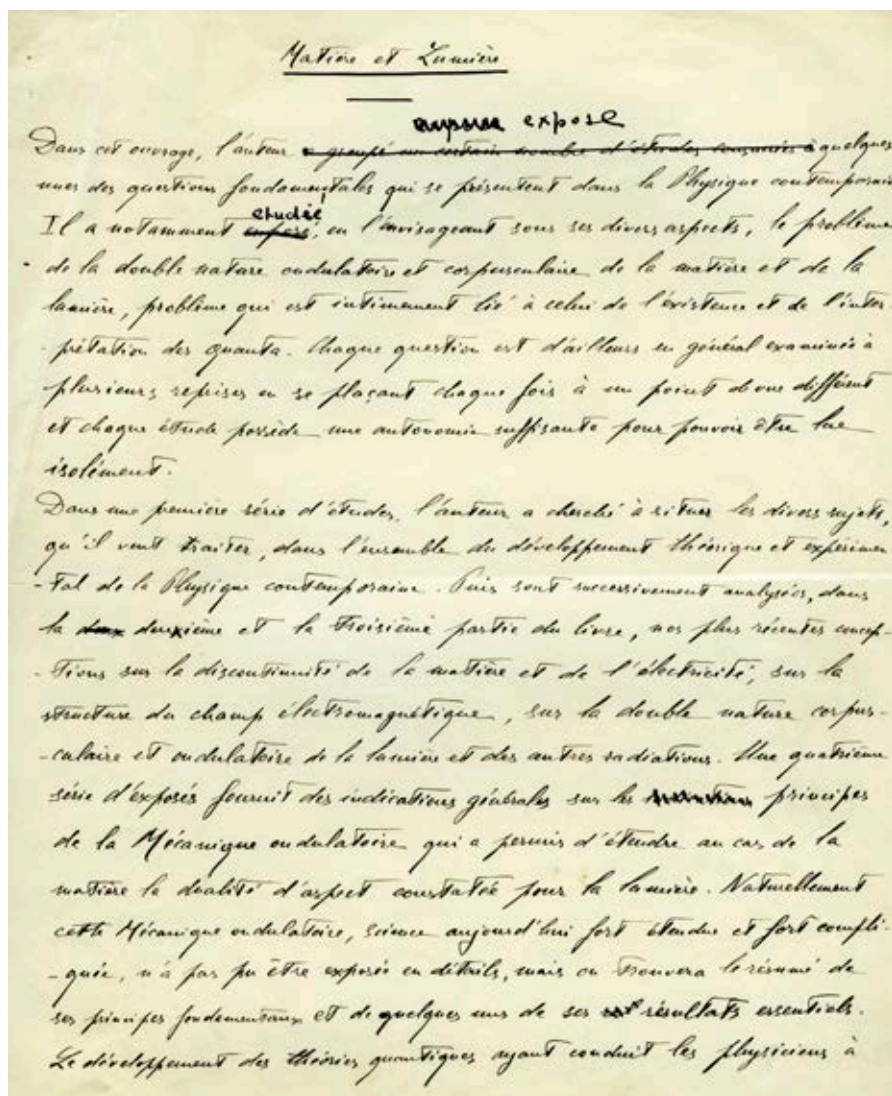 Matière et Lumière
expose
Dans cet ouvrage, l'auteur a groupé un certain nombre d'études consacrées à quelques
unes des questions fondamentales qui se présentent dans la Physique contemporaine
etudié
Il a notamment exposé, en l'envisageant sous ses divers aspects, le problème
de la double nature ondulatoire et corpusculaire de la matière et de la
lumière, problème qui est intimement lié à celui de l'existence et de l'inter
-prétation des quanta. Chaque question est d'ailleurs en général examinée à
plusieurs reprises en se plaçant chaque fois à un point de vue différent
et chaque étude possède une autonomie suffisante pour pouvoir être lue
isolément.
Dans une première série d'études, l'auteur a cherché à situer les divers sujets,
qu'il veut traiter, dans l'ensemble du développement théorique et expérimen
-tal de la Physique contemporaine. Puis sont successivement analysées, dans
la deux deuxième et la troisième partie du livre, nos plus récentes concep-
-tions sur la discontinuité de la matière et de l'électricité, sur la
structure du champ électromagnétique, sur la double nature corpus-
-culaire et ondulatoire de la lumière et des autres radiations. Une quatrième
série d'exposés fournit des indications générales sur les principes
de la Mécanique ondulatoire qui a permis d'étendre au cas de la
matière la dualité d'aspect constatée pour la lumière. Naturellement
cette Mécanique ondulatoire, science aujourd'hui fort étendue et fort compli-
-quée, n'a pas pu être exposée en détails, mais on trouvera le résumé de
ses principes fondamentaux et de quelques uns de ses résultats essentiels.
Le développement des théories quantiques ayant conduit les physiciens à